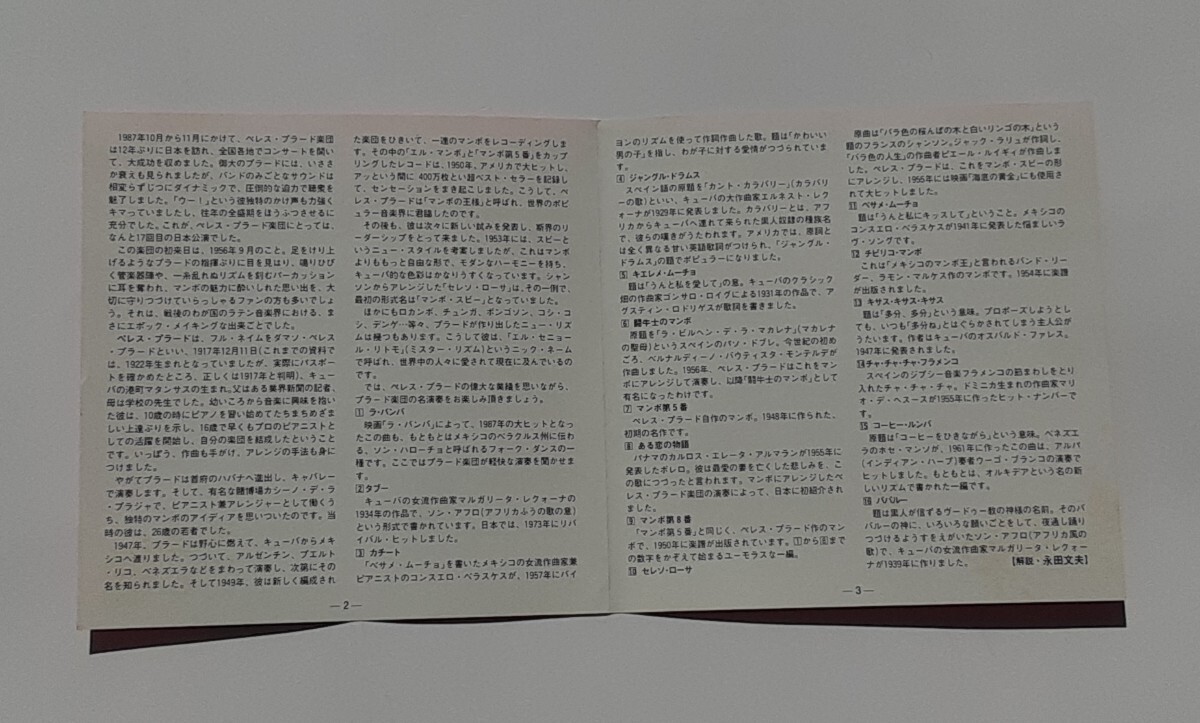 1987年10月から11月にかけて、ペレス・プラード楽団
は12年ぶりに日本を訪れ、全国各地でコンサートを開い
て、大成功を収めました。御大のプラードには、いささ
か衰えも見られましたが、バンドのみごとなサウンドは
相変らずじつにダイナミックで、圧倒的な迫力で聴衆を
魅了しました。「ウー!」という彼独特のかけ声も力強く
キマっていましたし、往年の全盛期をほうふつさせるに
充分でした。これが、ペレス・プラード楽団にとっては、
なんと17回目の日本公演でした。
この楽団の初来日は、1956年9月のこと。足をけり上
げるようなプラードの指揮ぶりに目を見はり、鳴りひび
く管楽器陣や、一糸乱れぬリズムを刻むパーカッション
に耳を奪われ、マンボの魅力に酔いしれた思い出を、大
切に守りつづけていらっしゃるファンの方も多いでしょ
う。それは、戦後のわが国のラテン音楽界における、ま
さにエポック・メイキングな出来ことでした。
ペレス・プラードは、フル・ネイムをダマソ・ペレス・
プラードといい、1917年12月11日(これまでの資料で
は、1922年生まれとなっていましたが、実際にパスポー
トを確かめたところ、正しくは1917年と判明)、キュー
バの港町マタンサスの生まれ。父はある業界新聞の記者、
母は学校の先生でした。幼いころから音楽に興味を抱い
た彼は、10歳の時にピアノを習い始めてたちまちめざま
しい上達ぶりを示し、16歳で早くもプロのピアニストと
しての活躍を開始し、自分の楽団を結成したということ
です。いっぽう、作曲も手がけ、アレンジの手法も身に
つけました。
やがてプラードは首府のハバナへ進出し、キャバレー
で演奏します。そして、有名な賭博場カシーノ・デ・ラ
・プラジャで、ピアニスト兼アレンジャーとして働くう
ち、独特のマンボのアイディアを思いついたのです。当
時の彼は、26歳の若者でした。
1947年、プラードは野心に燃えて、キューバからメキ
シコへ渡りました。つづいて、アルゼンチン、プエルト
・リコ、ベネズエラなどをまわって演奏し、次第にその
名を知られました。そして1949年、彼は新しく編成され
— 2 —
た楽団をひきいて、一連のマンボをレコーディングしま
す。その中の「エル・マンボ」と「マンボ第5番」をカップ
リングしたレコードは、1950年、アメリカで大ヒットし、
アッという間に 400万枚という超ベスト・セラーを記録し
て、センセーションをまき起こしました。こうして、ペ
レス・プラードは「マンボの王様」と呼ばれ、世界のポピ
ュラー音楽界に君臨したのです。
その後も、彼は次々に新しい試みを発表し、斯界のリ
ーダーシップをとって来ました。1953年には、スビーと
いうニュー・スタイルを考案しましたが、これはマンボ
よりももっと自由な形で、モダンなハーモニーを持ち、
キューバ的な色彩はかなりうすくなっています。シャン
ソンからアレンジした「セレソ・ローサ」は、その一例で、
最初の形式名は「マンボ・スビー」となっていました。
ほかにもロカンボ、チュンガ、ボンゴソン、コシ・コ
シ、デンゲ…等々、プラードが作り出したニュー・リズ
ムは幾つもあります。こうして彼は、「エル・セニョー
ル・リトモ」(ミスター・リズム)というニック・ネーム
で呼ばれ、世界中の人々に愛されて現在に及んでいるの
です。
では、ペレス・プラードの偉大な業績を思いながら、
プラード楽団の名演奏をお楽しみ頂きましょう。
1 ラ・バンバ
映画「ラ・バンバ」によって、1987年の大ヒットとな
ったこの曲も、もともとはメキシコのベラクルス州に伝わ
る、ソン・ハローチョと呼ばれるフォーク・ダンスの一
種です。ここではプラード楽団が軽快な演奏を聞かせま
す。
2 タブー
キューバの女流作曲家マルガリータ・レクォーナの
1934年の作品で、ソン・アフロ(アフリカふうの歌の意)
という形式で書かれています。日本では、1973年にリバ
イバル・ヒットしました。
3 カチート
「ベサメ・ムーチョ」を書いたメキシコの女流作曲家兼
ピアニストのコンスエロ・ベラスケスが、1957年にバイ
ヨンのリズムを使って作詞作曲した歌。題は「かわいい
男の子」を指し、わが子に対する愛情がつづられていま
す。
4 ジャングル・ドラムス
スペイン語の原題を「カント・カラバリー」(カラバリ
ーの歌)といい、キューバの大作曲家エルネスト・レク
ォーナが1929年に発表しました。カラバリーとは、アフ
リカからキューバへ連れて来られた黒人奴隷の種族名
で、彼らの嘆きがうたわれます。アメリカでは、原詞と
は全く異なる甘い英語歌詞がつけられ、「ジャングル・
ドラムス」の題でポピュラーになりました。
5 キエレメ・ムーチョ
題は「うんと私を愛して」の意。キューバのクラシック
畑の作曲家ゴンサロ・ロイグによる1931年の作品で、ア
グスティン・ロドリゲスが歌詞を書きました。
6 闘牛士のマンボ
原題を「ラ・ビルヘン・デ・ラ・マカレナ」(マカレナ
の聖母)というスペインのパソ・ドブレ。今世紀の初め
ごろ、ベルナルディーノ・バウティスタ・モンテルデが
作曲しました。1956年、ペレス・プラードはこれをマンボ
にアレンジして演奏し、以降「闘牛士のマンボ」として
有名になったわけです。
7 マンボ第5番
ペレス・プラード自作のマンボ。1948年に作られた、
初期の名作です。
8 ある恋の物語
パナマのカルロス・エレータ・アルマランが1955年に
発表したボレロ。彼は最愛の妻を亡くした悲しみを、こ
の歌につづったと言われます。マンボにアレンジしたペ
レス・プラード楽団の演奏によって、日本に初紹介され
ました。
9 マンボ第8番
「マンボ第5番」と同じく、ペレス・プラード作のマン
ボで、1950年に楽譜が出版されています。1から8まで
の数字をかぞえて始まるユーモラスな一編。
10 セレソ・ローサ
原曲は「バラ色の桜んぼの木と白いリンゴの木」という
題のフランスのシャンソン。ジャック・ラリュが作詞し、
「バラ色の人生」の作曲者ピエール・ルイギィが作曲しま
した。ペレス・プラードは、これをマンボ・スビーの形
にアレンジし、1955年には映画「海底の黄金」にも使用さ
れて大ヒットしました。
11 ベサメ・ムーチョ
題は「うんと私にキッスして」ということ。メキシコの
コンスエロ・ベラスケスが1941年に発表した悩ましいラ
ヴ・ソングです。
12 チピリコ・マンボ
これは「メキシコのマンボ王」と言われるバンド・リー
ダー、ラモン・マルケス作のマンボです。1954年に楽譜
が出版されました。
13 キサス・キサス・キサス
題は「多分、多分」という意味。プロポーズしようとし
ても、いつも「多分ね」とはぐらかされてしまう主人公が
うたいます。作者はキューバのオスバルド・ファレス。
1947年に発表されました。
14 チャ・チャ・チャ・フラメンコ
スペインのジプシー音楽フラメンコの節まわしをとり
入れたチャ・チャ・チャ。ドミニカ生まれの作曲家マリ
オ・デ・ヘスースが1955年に作ったヒット・ナンバーで
す。
15 コーヒー・ルンバ
原題は「コーヒーをひきながら」という意味。ベネズエ
ラのホセ・マンソが、1961年に作ったこの曲は、アルパ
(インディアン・ハープ)奏者ウーゴ・ブランコの演奏で
ヒットしました。もともとは、オルキデアという名の新
しいリズムで書かれた一編です。
16 ババルー
題は黒人が信ずるヴードゥー教の神様の名前。そのバ
バルーの神に、いろいろな願いごとをして、夜通し踊り
つづけるようすをえがいたソン・アフロ(アフリカ風の
歌)で、キューバの女流作曲家マルガリータ・レクォー
ナが1939年に作りました。 【解説・永田文夫】
— 3 —